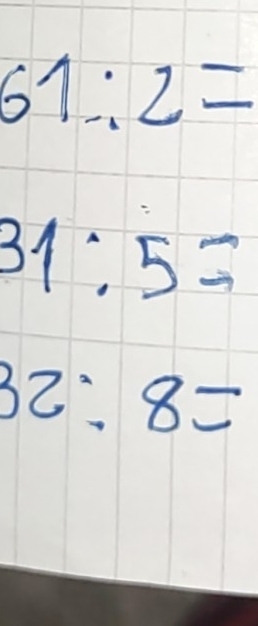 61:2=
31:5=
32:8=